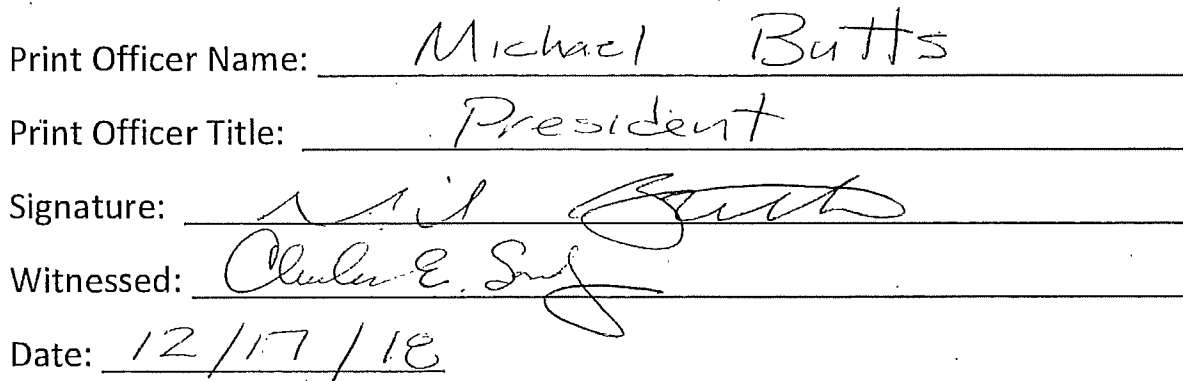 Print Officer Name: Michael Butts
Print Officer Title: President
Signature: Butts
Witnessed: E.
Date: 12/17/18